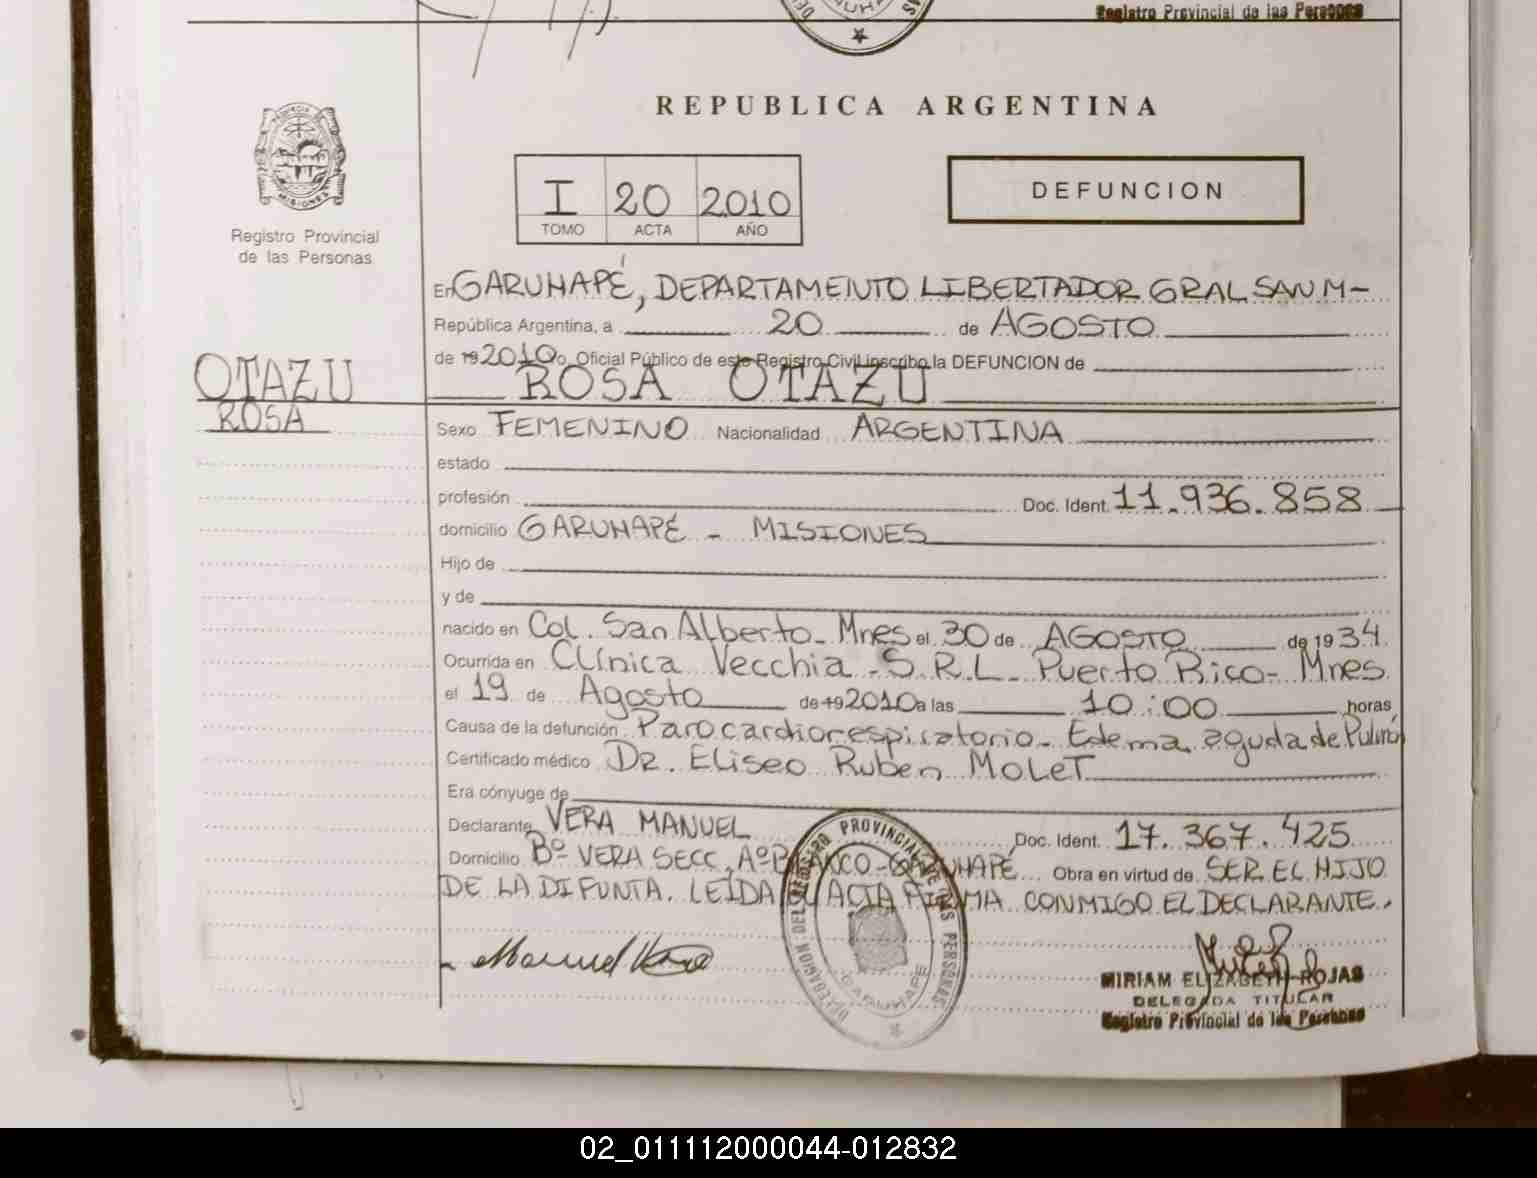 Registro Provincial de las Personas
REPUBLICA ARGENTINA
PROVINCIA DE
MISIONES
Registro Provincial
de las Personas
I 20 2010
TOMO ACTA AÑO
DEFUNCION
En GARUHAPÉ, DEPARTAMENTO LIBERTADOR GRAL SAN M-
República Argentina, a 20 de AGOSTO
de 19 2010 Oficial Público de este Registro Civil inscribo la DEFUNCION de
OTAZU
ROSA
ROSA OTAZU
Sexo FEMENINO Nacionalidad ARGENTINA
estado
profesión Doc. Ident. 11.936.858
domicilio GARUHAPÉ - MISIONES
Hijo de
y de
nacido en Col. San Alberto - Mnes el 30 de AGOSTO de 1934.
Ocurrida en Clínica Vecchia - S.R.L. Puerto Rico - Mnes.
el 19 de Agosto de 19 2010 a las 10:00 horas,
Causa de la defunción Paro cardiorespiratorio - Edema aguda de Pulmó
Certificado médico Dr. Eliseo Ruben Molet
Era cónyuge de
Declarante VERA MANUEL Doc. Ident. 17.367.425
Domicilio Bº VERA SECC. Aº BLANCO - GARUHAPÉ Obra en virtud de SER EL HIJO
DE LA DIFUNTA. LEIDA EL ACTA FIRMA CONMIGO EL DECLARANTE.
Manuel Vera
DELEGACION DEL REGISTRO PROVINCIAL DE LAS PERSONAS
GARUHAPE
MIRIAM ELIZABETH ROJAS
DELEGADA TITULAR
Registro Provincial de las Personas
02_011112000044-012832